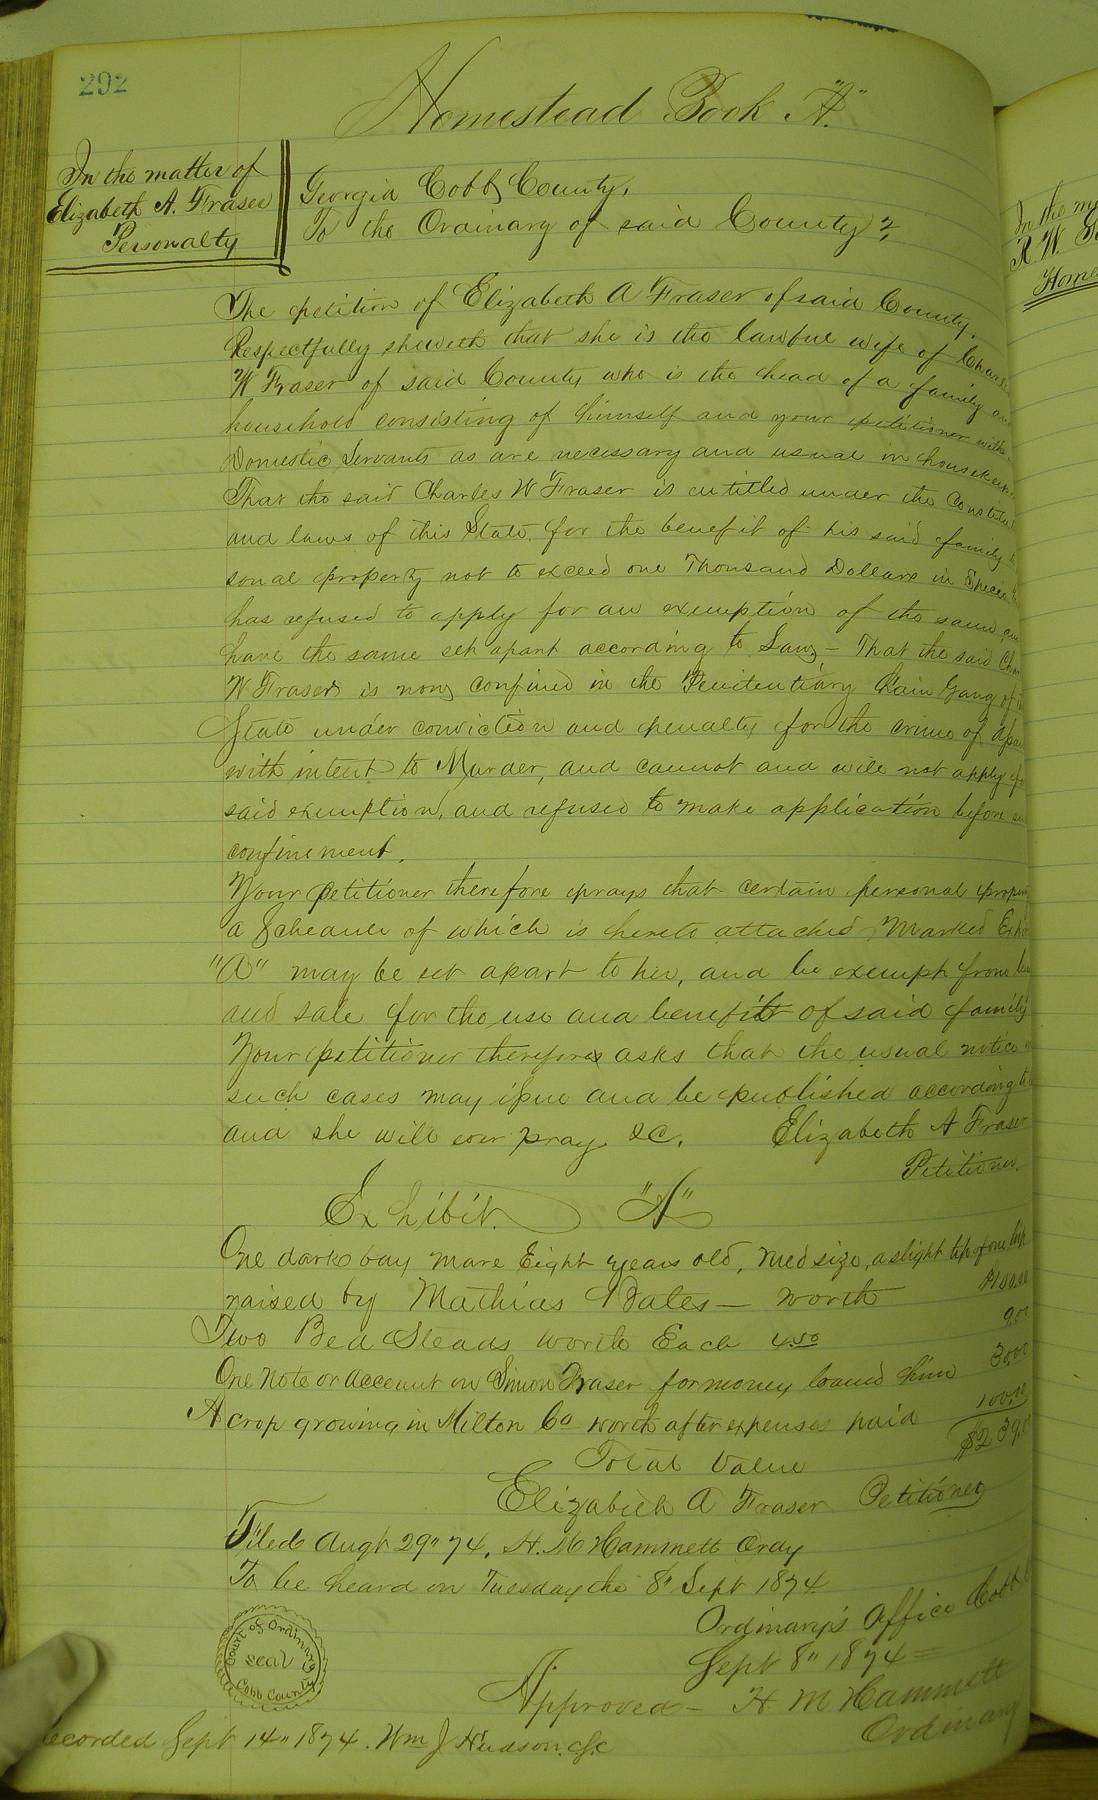 292
Homestead Book "A"
In the matter of
Elizabeth A. Fraser
Personalty
Georgia Cobb County,
To the Ordinary of said County?,
The petition of Elizabeth A Fraser of said County.
Respectfully sheweth that she is the lawful wife of Charles
W Fraser of said County who is the head of a family and
household consisting of himself and your petitioner with
Domestic Servants as are necessary and usual in housekeep
That the said Charles W Fraser is entitled under the Constitut
and laws of this State, for the benefit of his said family
sonal property not to exceed one Thousand Dollars in Specie
has refused to apply for an exemption of the same, an
have the same set apart according to Law, - That the said Char
W Fraser is now confined in the Penitentiary Chain Gang of
State under conviction and penalty for the crime of
with intent to Murder, and cannot and will not apply fo
said exemption, and refused to make application before
confinement.
Your petitioner therefore prays that certain personal proper
a Schedule of which is hereto attached, Marked Exhi
"A" may be set apart to her, and be exempt from lev
and sale for the use and benefit of said family
Your petitioner therefore asks that the usual notice
such cases may issue and be published according to
and she will ever pray &c. Elizabeth A Fraser
Petitioner.
Exhibit "A"
One dark bay mare Eight years old, med size, a slight tip of one
raised by Mathias Bates - worth $100.00
Two Bed Steads worth Each 4.50 9.00
One Note or Account on Simon Fraser for money loaned him 30.00
A crop growing in Milton Co worth after expenses paid 100.00
Total Value $239.00
Elizabeth A Fraser Petitioner
Filed Augt 29" 74, H. M Hammett Ordy
To be heard on Tuesday the 8" Sept 1874
Ordinary's Office Cobb
Sept 8" 1874
Approved - H M Hammett
Ordinary
Court of Ordinary
seal
Cobb County
ecorded Sept 14" 1874. Wm J Hudson.
In the
R W
Home